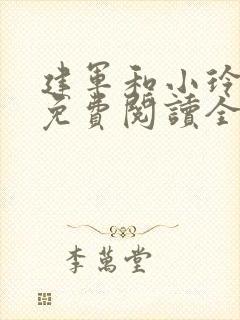 建军和小玲
免費閱讀全
李萬堂